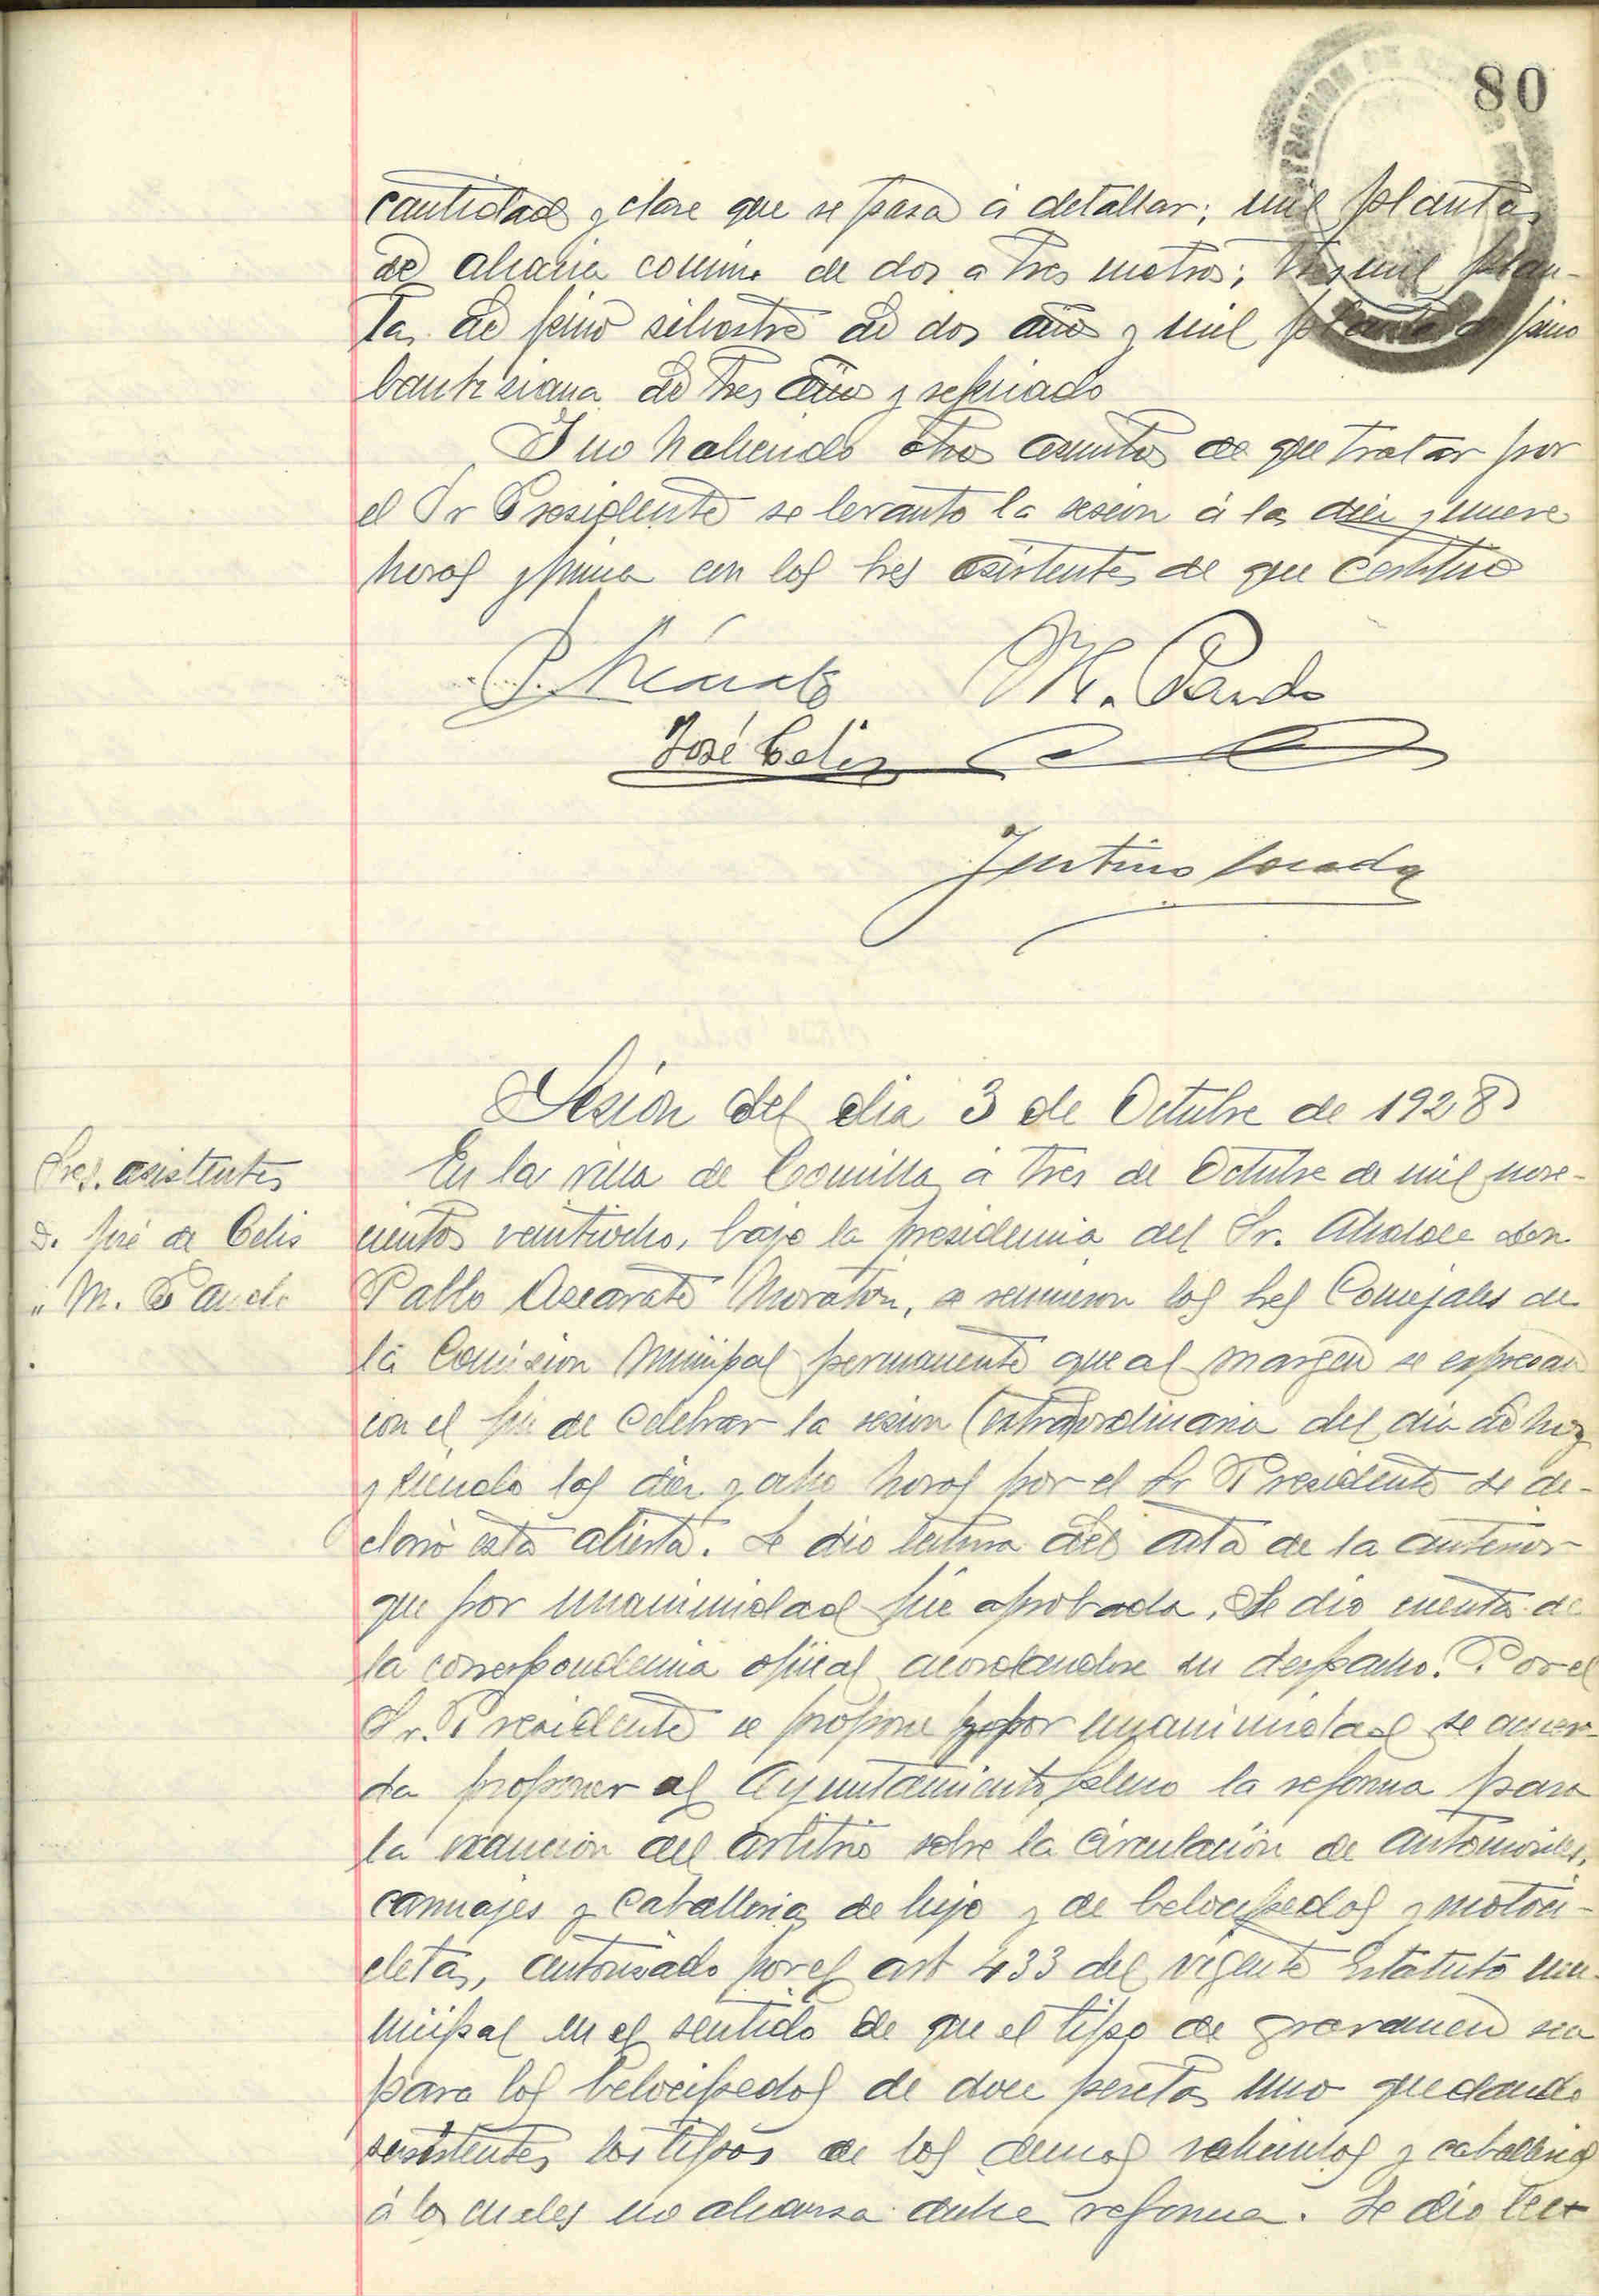 80
cantidad y clase que se pasa á detallar; mil plantas
de acacia común de dos a tres metros; tres mil plan-
tas de pino silvestre de dos años y mil plantas de pino
banksiana de tres años y repicado
Y no habiendo otros asuntos de que tratar por
el Sr Presidente se levanto la sesion á las diez y nueve
horas y firma con los Sres asistentes de que certifico
P. Azcárate M. Pando
José Celis
Justino
Sesión del dia 3 de Octubre de 1928
Sres. asistentes
D. José de Celis
" M. Pando
En la villa de Comillas á tres de Octubre de mil nove-
cientos veintiocho, bajo la presidencia del Sr. Alcalde don
Pablo Ascarate Moratón, se reunieron los Sres Concejales de
la Comision Municipal permanente que al margen se expresan
con el fin de celebrar la sesion extraordinaria del dia de hoy
y siendo las diez y ocho horas por el Sr Presidente se de-
claró esta abierta. Se dio lectura del acta de la anterior
que por unanimidad fué aprobada. Se dio cuenta de
la correspondencia oficial acordandose su despacho. Por el
Sr. Presidente se propone y por unanimidad se acuer-
da proponer al Ayuntamiento pleno la reforma para
la exaccion del arbitrio sobre la circulación de automoviles,
carruajes y caballerias de lujo y de belocipedos y motoci-
cletas, autorizado por el art 433 del vigente Estatuto mu-
nicipal en el sentido de que el tipo de gravamen sea
para los belocipedos de doce pesetas uno quedando
los tipos de los demas vehiculos y caballerias
á los cuales no alcanza dicha reforma. Se dio lec-